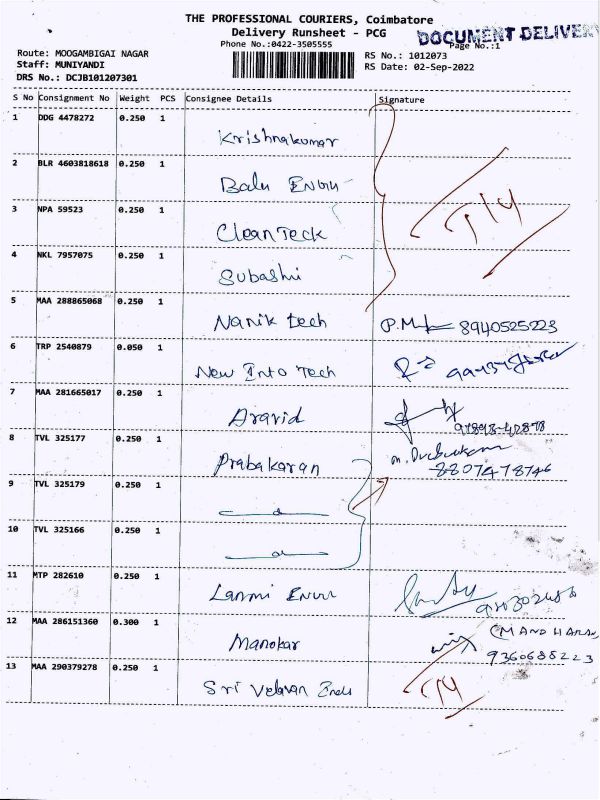 THE PROFESSIONAL COURIERS, Coimbatore
Delivery Runsheet - PCG
DOCUMENT DELIVER
Phone No.:0422-3505555
Page No.:1
Route: MOOGAMBIGAI NAGAR
RS No.: 1012073
Staff: MUNIYANDI
RS Date: 02-Sep-2022
DRS No.: DCJB101207301
S No Consignment No Weight PCS Consignee Details Signature
1 DDG 4478272 0.250 1
Krishnakumar
2 BLR 4603818618 0.250 1
Balu
3 NPA 59523 0.250 1
CleanTeck
4 NKL 7957075 0.250 1
Subashri
5 MAA 288865068 0.250 1
Nanik tech 8940525223
6 TRP 2540879 0.050 1
New Into Tech
7 MAA 281665017 0.250 1
Aravid
8 TVL 325177 0.250 1
Prabakaran
9 TVL 325179 0.250 1
10 TVL 325166 0.250 1
11 MTP 282610 0.250 1
Laxmi
12 MAA 286151360 0.300 1
Manokar
9360688223
13 MAA 290379278 0.250 1
Sri Velavan